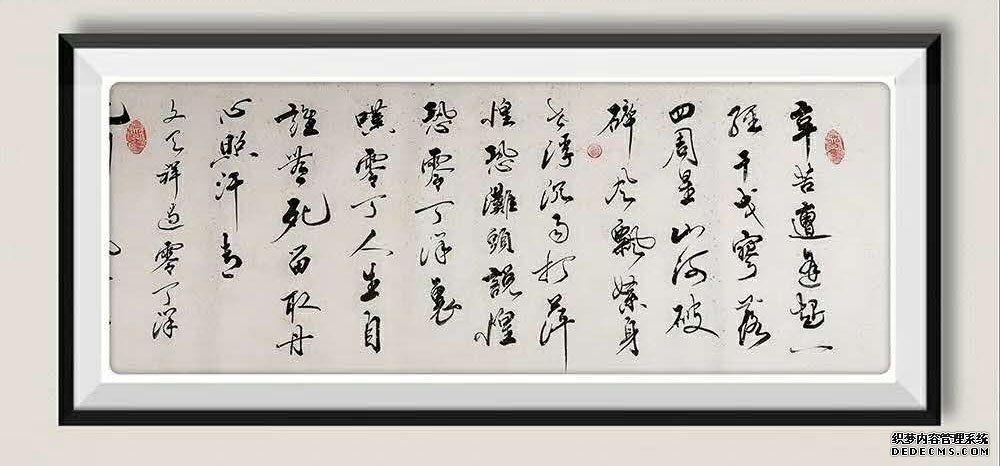 辛苦遭逢起一
經干戈寥落
四周星山河破
碎風飄絮身
世浮沉雨打萍
惶恐灘頭說惶
恐零丁洋裏
嘆零丁人生自
誰無死留取丹
心照汗青
文天祥過零丁洋
织梦内容管理系统
DEDECMS.COM